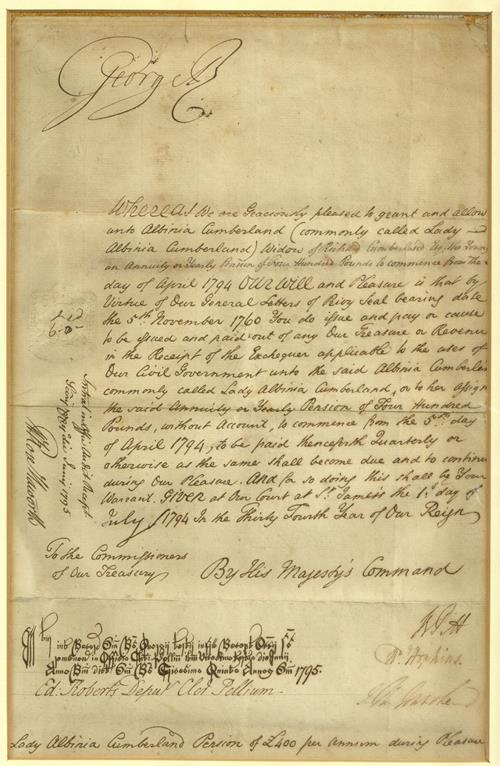 George R
Whereas We are Graciously pleased to grant and allow
unto Albinia Cumberland (commonly called Lady
Albinia Cumberland) Widow of Richard Cumberland Esq.
an Annuity or Yearly Pension of Four Hundred Pounds to commence from the
day of April 1794 Our Will and Pleasure is that by
Virtue of Our General Letters of Privy Seal bearing date
the 5th November 1760 You do issue and pay or cause
to be issued and paid out of any Our Treasure or Revenue
in the Receipt of the Exchequer applicable to the uses of
Our Civil Government unto the said Albinia Cumberlan
commonly called Lady Albinia Cumberland, or to her Assigns
the said Annuity or Yearly Pension of Four Hundred
Pounds, without Account, to commence from the 5th day
of April 1794, to be paid henceforth Quarterly or
otherwise as the same shall become due and to continue
during Our Pleasure. And for so doing this shall be Your
Warrant. Given at Our Court at St. James's the 1st day of
July 1794 In the Thirty Fourth Year of Our Reign
To the Commissioners
of Our Treasury
By His Majesty's Command
1795
1795.
Ed: Roberts Deput Cler Pellium.
Hopkins.
Lady Albinia Cumberland Pension of £400 per annum during Pleasure